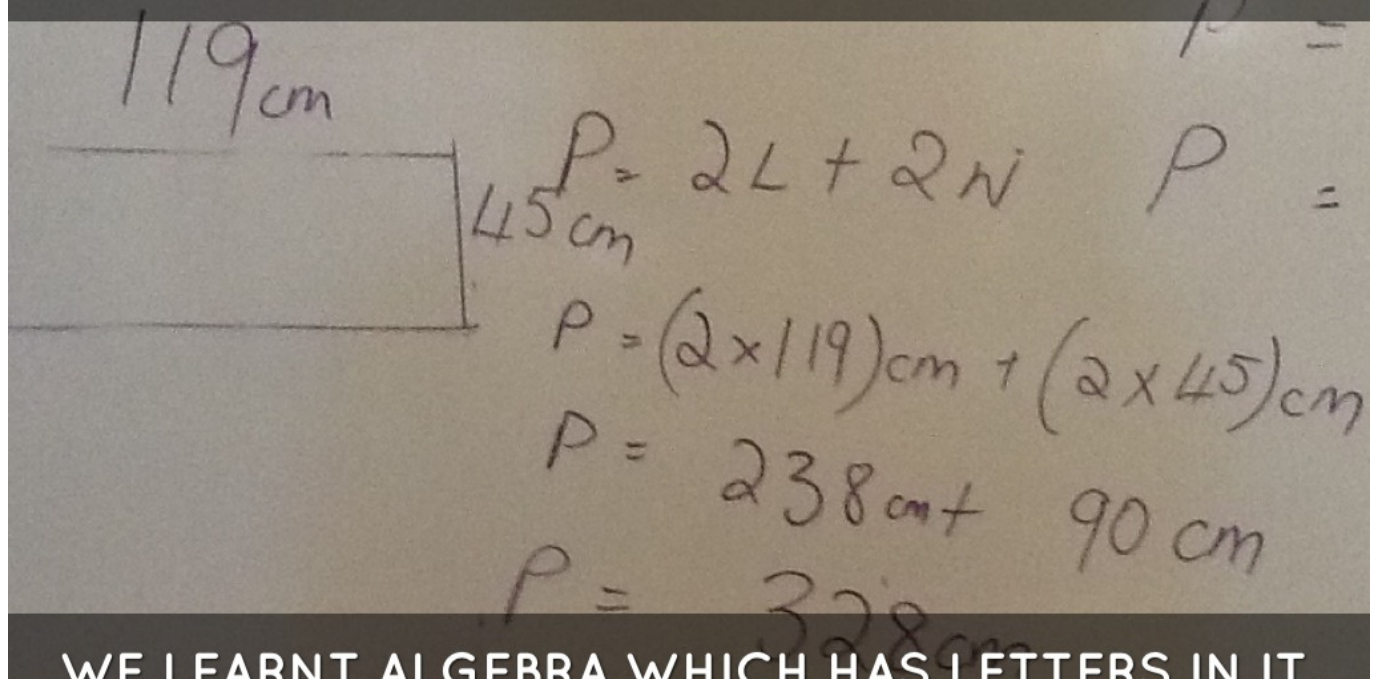 119cm
P =
P = 2L + 2W P =
45cm
P = (2×119)cm + (2×45)cm
P = 238cm + 90 cm
P = 328cm
WE LEARNT ALGEBRA WHICH HAS LETTERS IN IT